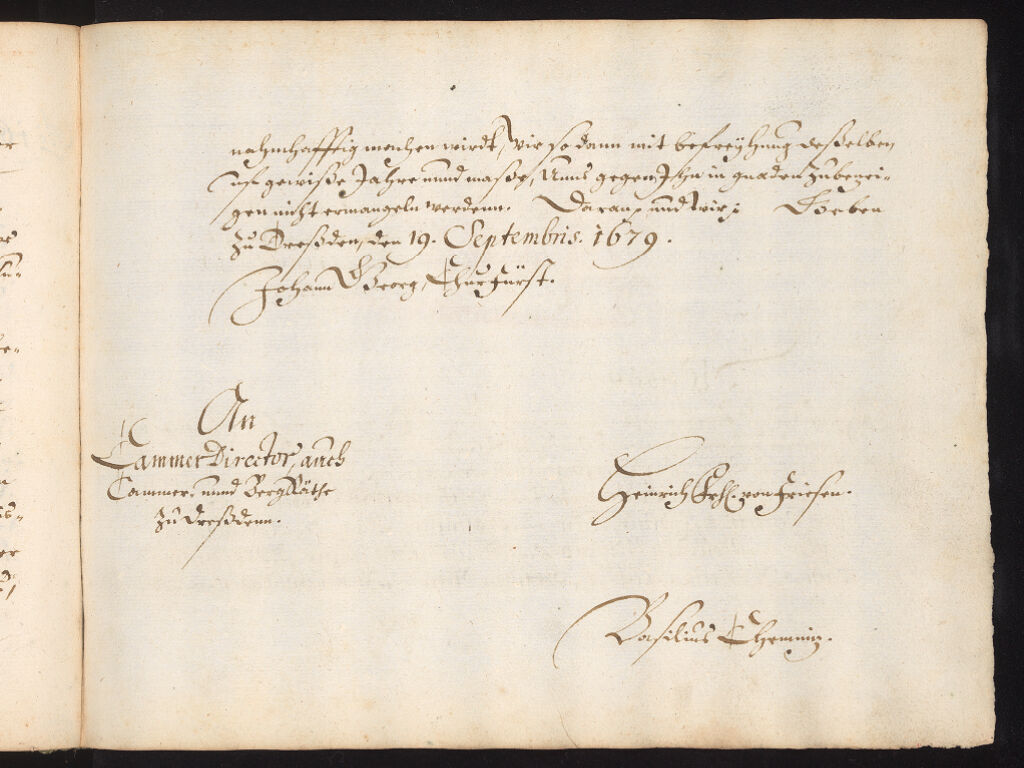 nahmhafftig machen wirdt, Wir so dann mit befreyhung deßelben,
uf gewiße Jahre unnd maße, Unns gegen Ihn in gnaden zubezei-
gen nicht ermangeln werdenn. Daran, und wir; Geben
zu Dreßden, den 19. Septembris. 1679.
Johann Georg, Churfürst.
An
Cammer Director, auch
Cammer- unnd Berg Räthe
zu Dreßdenn.
Heinrich Frhl. von Friesen.
Basilius Chemniz.